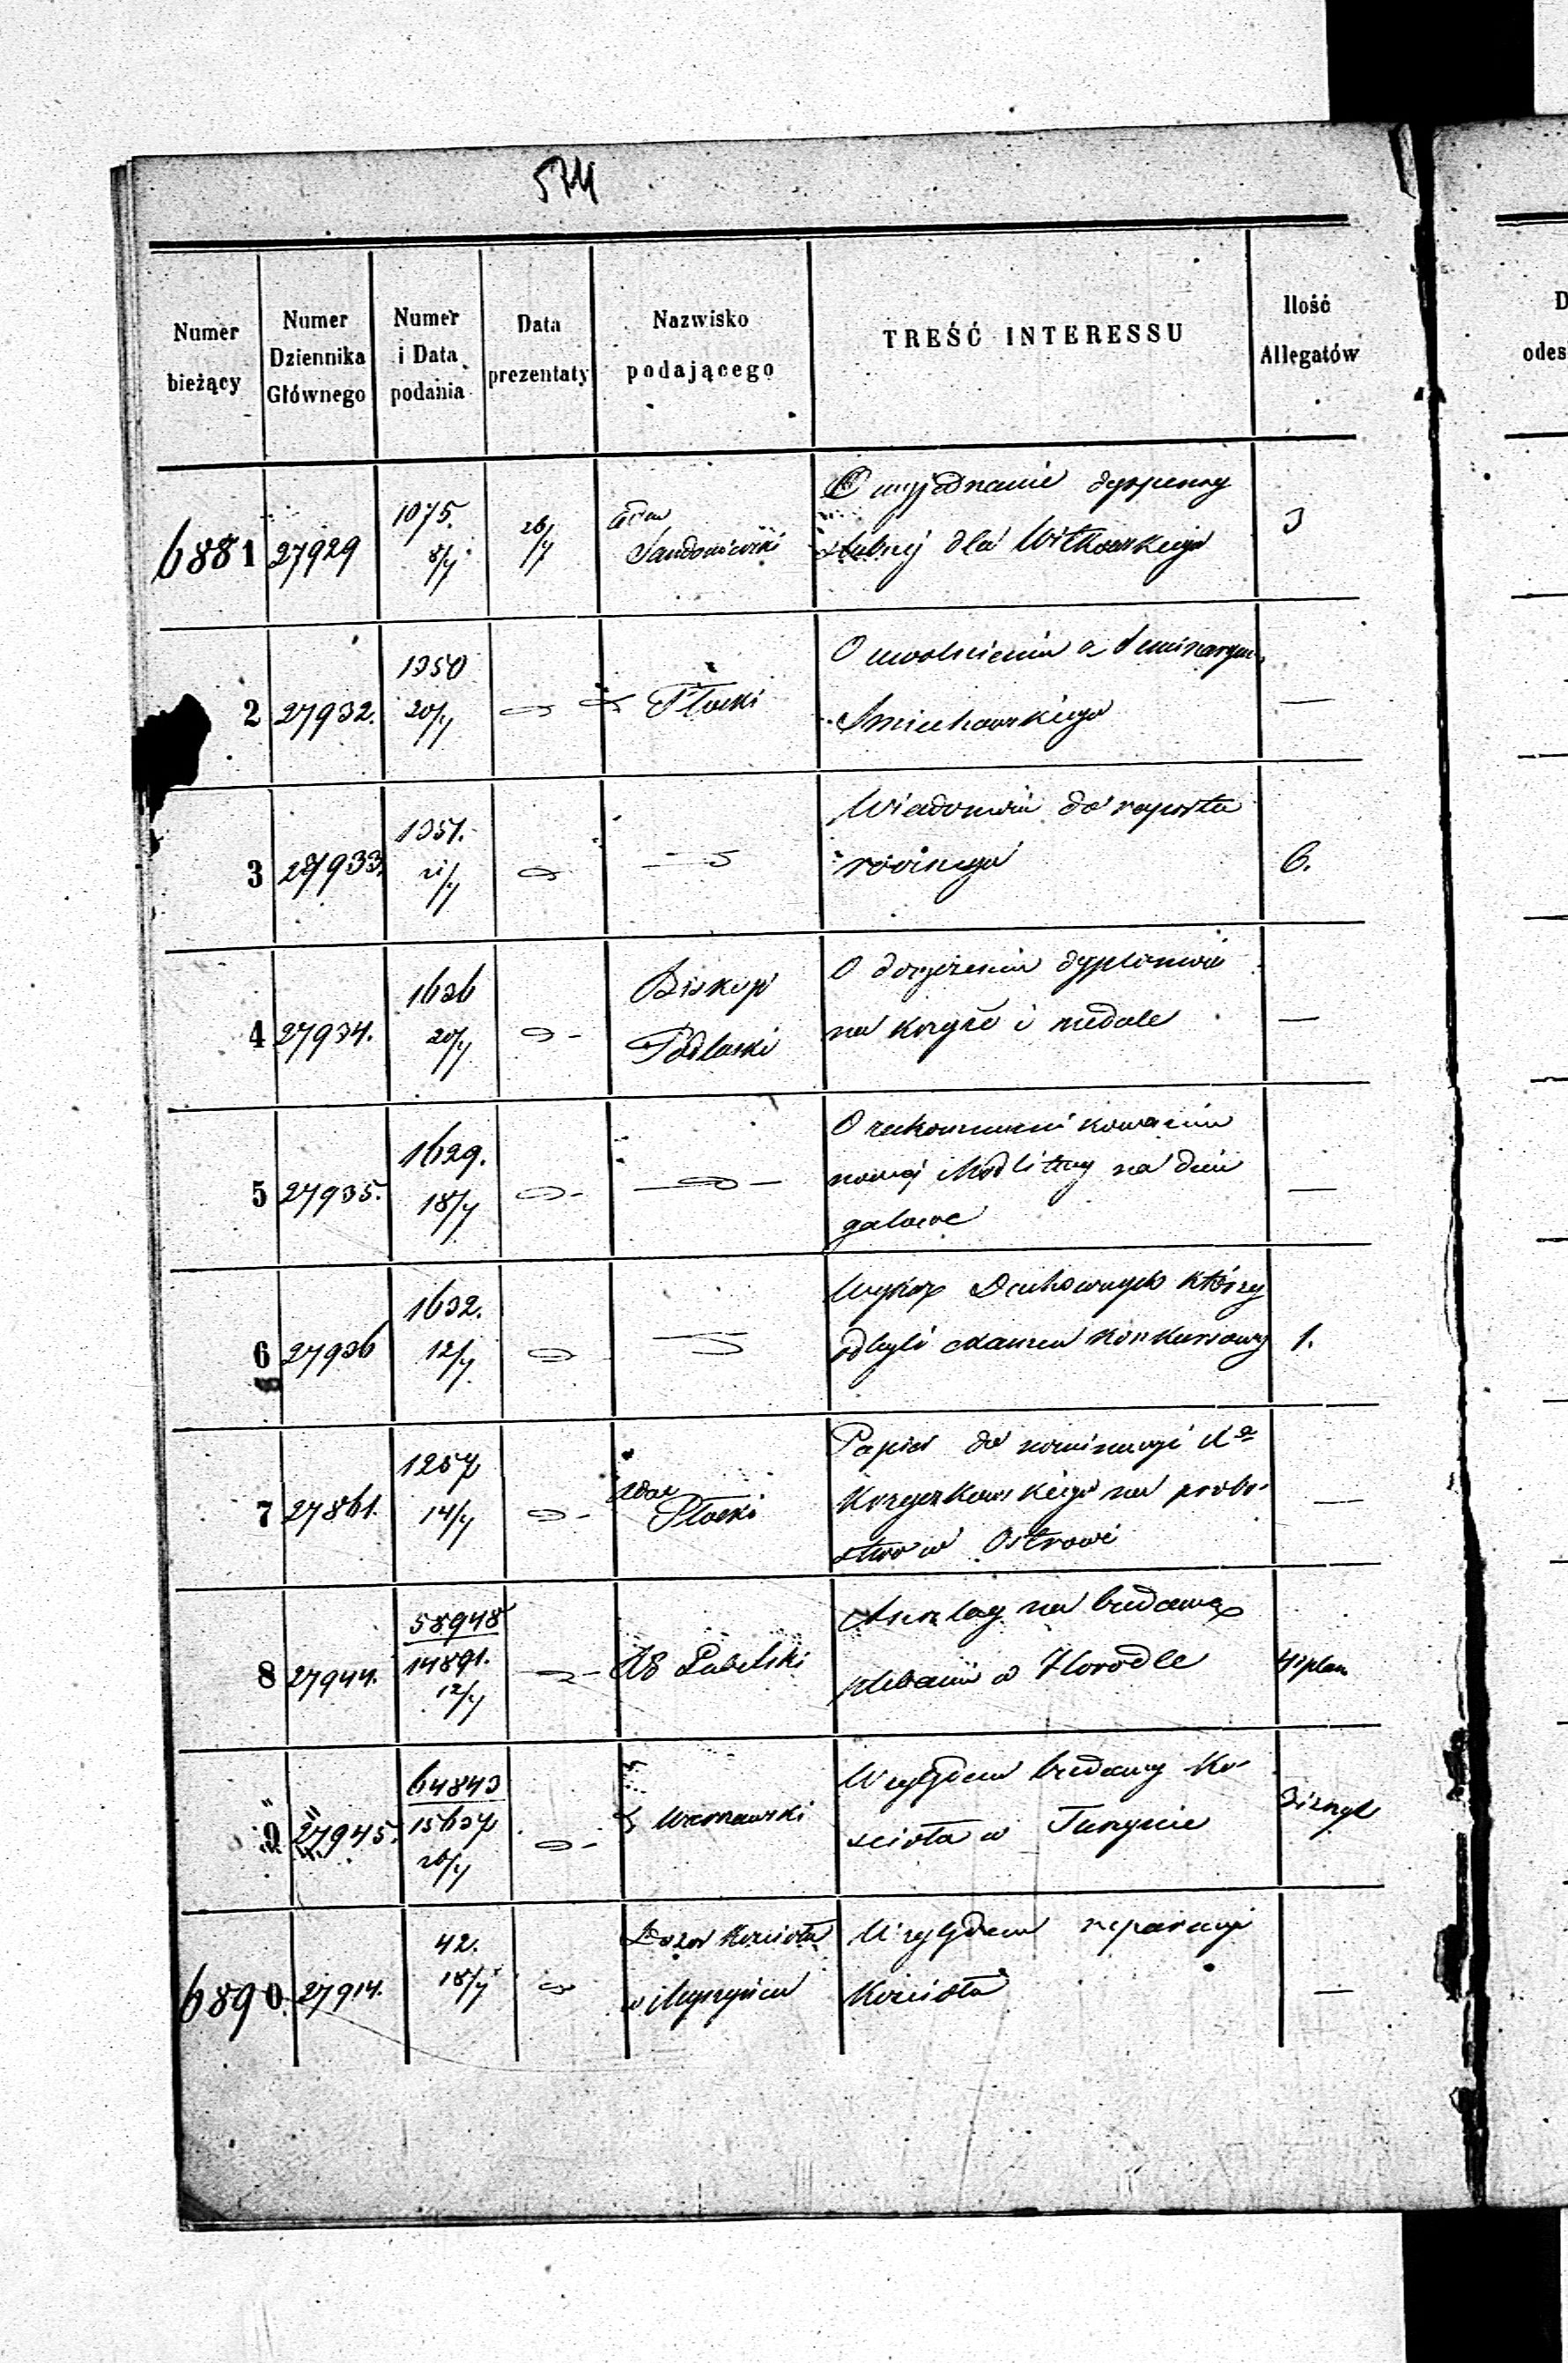 574
Numer bieżący
Numer Dziennika Głównego
Numer i Data podania
Data prezentaty
Nazwisko podającego
TREŚĆ INTERESSU
Ilość Allegatów
D
odes
6881 27929 1075. 8/7 26/7 Sandomierski O wyjednanie dyspensy
ślubnej dla Witkowskiego 3
2 27932. 1350 20/7 Płocki O uwolnieniu z Seminaryum
Smiechowskiego —
3 27933. 1351. 21/7 Wiadomość do raportu
rocznego 6.
4 27934. 1636 20/7 Biskup Podlaski O doręczeniu dyplomów
na krzyże i medale —
5 27935. 1629. 18/7 O
nowej Modlitwy na dnie
galowe —
6 27936 1632. 12/7 Wykaz Duchownych którzy
odbyli examen konkursowy 1.
7 27861. 1257 14/7 Płocki Papier do nominacyi
Krzyczkowskiego na probo-
stwo w Ostrowi —
8 27944. 58948 14891. 12/7 Lubelski Anszlag na budowę
plebanii w Horodle
9 27945. 64843 15637 20/7 Warszawski Względem budowy Ko-
ścioła w Turzynie
6890. 27914. 42. 18/7 Dozor Kościoła
w Myszyńcu Względem reparacyi
Kościoła —